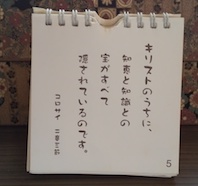 キリストのうちに、
知恵と知識との
宝がすべて
隠されているのです。
コロサイ 二章三節
5